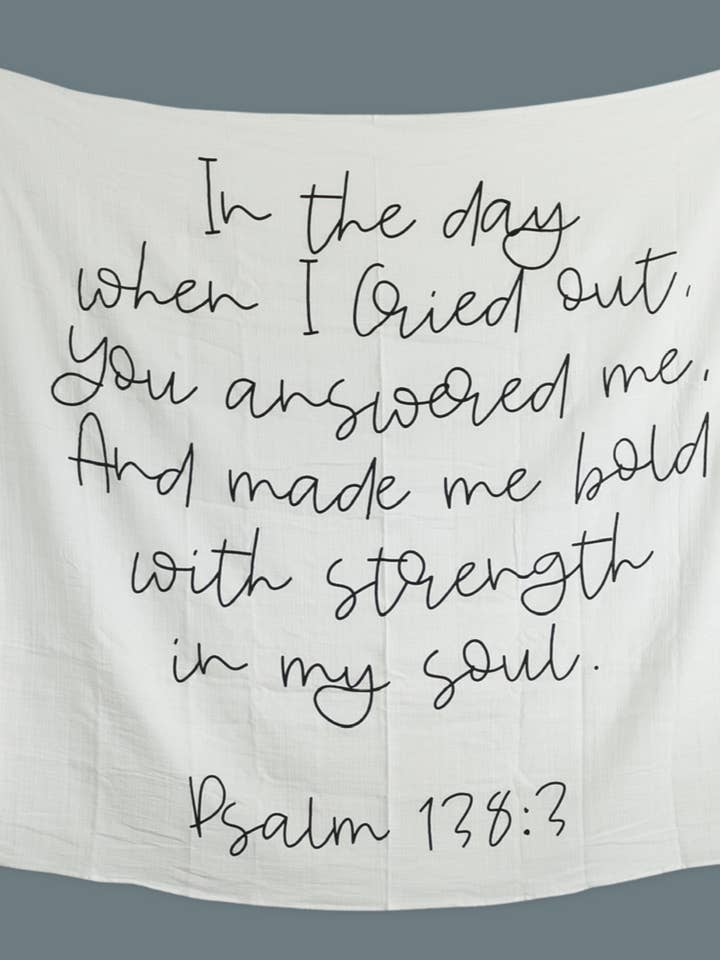 In the day
when I Cried out,
You answered me,
And made me bold
with strength
in my soul.
Psalm 138:3